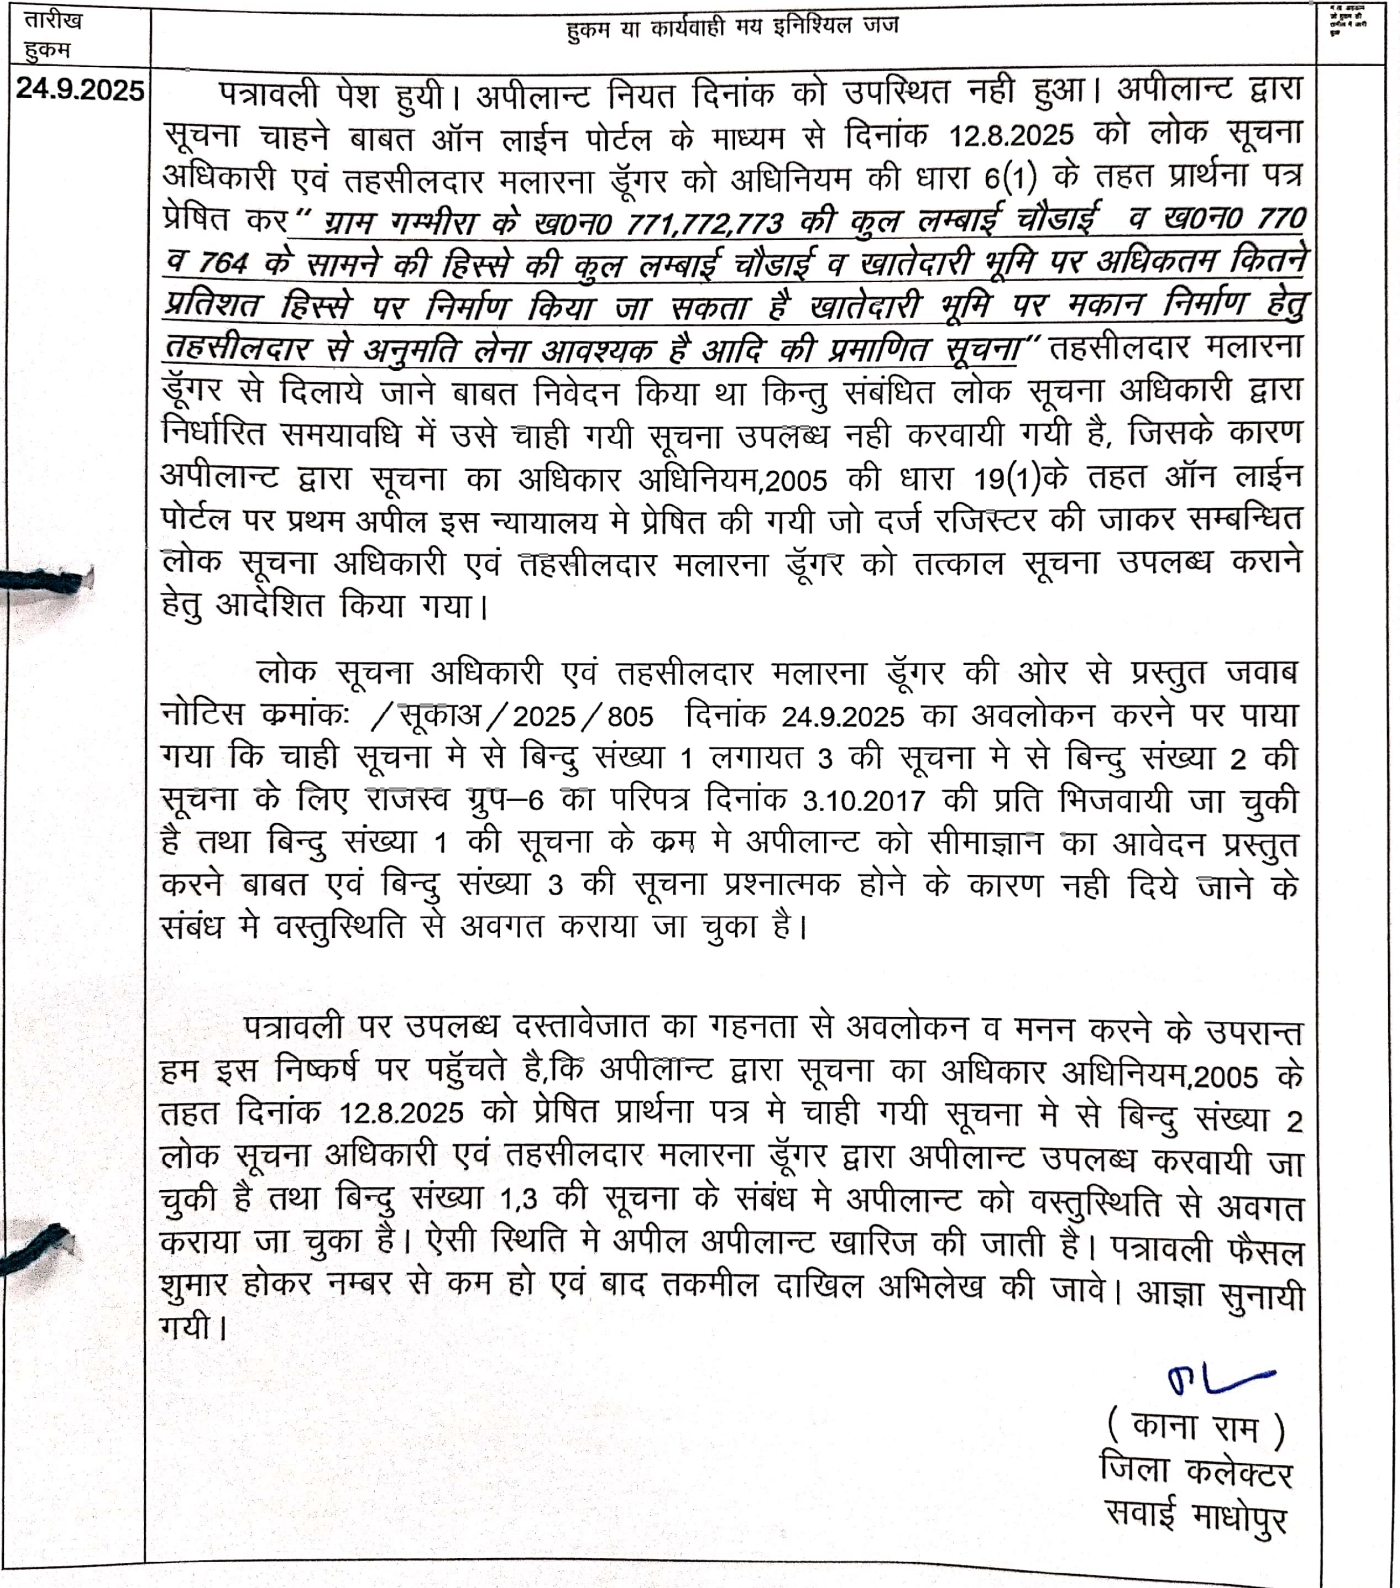 तारीख
हुकम
हुकम या कार्यवाही मय इनिशियल जज
24.9.2025
पत्रावली पेश हुयी। अपीलान्ट नियत दिनांक को उपस्थित नही हुआ। अपीलान्ट द्वारा
सूचना चाहने बाबत ऑन लाईन पोर्टल के माध्यम से दिनांक 12.8.2025 को लोक सूचना
अधिकारी एवं तहसीलदार मलारना डूॅगर को अधिनियम की धारा 6(1) के तहत प्रार्थना पत्र
प्रेषित कर" ग्राम गम्भीरा के ख0न0 771,772,773 की कुल लम्बाई चौडाई व ख0न0 770
व 764 के सामने की हिस्से की कुल लम्बाई चौडाई व खातेदारी भूमि पर अधिकतम कितने
प्रतिशत हिस्से पर निर्माण किया जा सकता है खातेदारी भूमि पर मकान निर्माण हेतु
तहसीलदार से अनुमति लेना आवश्यक है आदि की प्रमाणित सूचना" तहसीलदार मलारना
डूॅगर से दिलाये जाने बाबत निवेदन किया था किन्तु संबंधित लोक सूचना अधिकारी द्वारा
निर्धारित समयावधि में उसे चाही गयी सूचना उपलब्ध नही करवायी गयी है, जिसके कारण
अपीलान्ट द्वारा सूचना का अधिकार अधिनियम,2005 की धारा 19(1)के तहत ऑन लाईन
पोर्टल पर प्रथम अपील इस न्यायालय मे प्रेषित की गयी जो दर्ज रजिस्टर की जाकर सम्बन्धित
लोक सूचना अधिकारी एवं तहसीलदार मलारना डूॅगर को तत्काल सूचना उपलब्ध कराने
हेतु आदेशित किया गया।
लोक सूचना अधिकारी एवं तहसीलदार मलारना डूॅगर की ओर से प्रस्तुत जवाब
नोटिस क्रमांकः /सूकाअ/2025/805 दिनांक 24.9.2025 का अवलोकन करने पर पाया
गया कि चाही सूचना मे से बिन्दु संख्या 1 लगायत 3 की सूचना मे से बिन्दु संख्या 2 की
सूचना के लिए राजस्व ग्रुप–6 का परिपत्र दिनांक 3.10.2017 की प्रति भिजवायी जा चुकी
है तथा बिन्दु संख्या 1 की सूचना के क्रम मे अपीलान्ट को सीमाज्ञान का आवेदन प्रस्तुत
करने बाबत एवं बिन्दु संख्या 3 की सूचना प्रश्नात्मक होने के कारण नही दिये जाने के
संबंध मे वस्तुस्थिति से अवगत कराया जा चुका है।
पत्रावली पर उपलब्ध दस्तावेजात का गहनता से अवलोकन व मनन करने के उपरान्त
हम इस निष्कर्ष पर पहुॅचते है,कि अपीलान्ट द्वारा सूचना का अधिकार अधिनियम,2005 के
तहत दिनांक 12.8.2025 को प्रेषित प्रार्थना पत्र मे चाही गयी सूचना मे से बिन्दु संख्या 2
लोक सूचना अधिकारी एवं तहसीलदार मलारना डूॅगर द्वारा अपीलान्ट उपलब्ध करवायी जा
चुकी है तथा बिन्दु संख्या 1,3 की सूचना के संबंध मे अपीलान्ट को वस्तुस्थिति से अवगत
कराया जा चुका है। ऐसी स्थिति मे अपील अपीलान्ट खारिज की जाती है। पत्रावली फैसल
शुमार होकर नम्बर से कम हो एवं बाद तकमील दाखिल अभिलेख की जावे। आज्ञा सुनायी
गयी।
( काना राम )
जिला कलेक्टर
सवाई माधोपुर